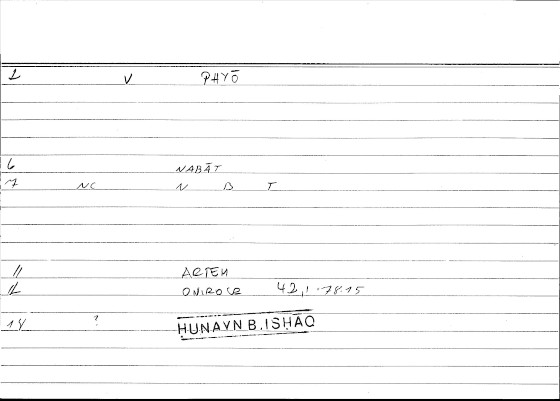 1 V PHYŌ
6 NABĀT
7 NC N B T
11 ARTEM
12 ONIROCR 42,1-78.15
14 ? HUNAYN B. ISHAQ